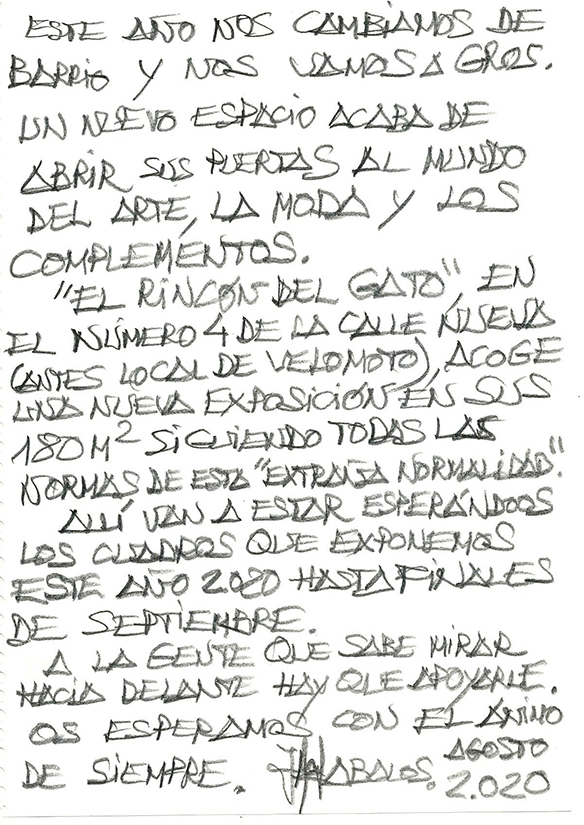 ESTE AÑO NOS CAMBIAMOS DE
BARRIO Y NOS VAMOS A GROS.
UN NUEVO ESPACIO ACABA DE
ABRIR SUS PUERTAS AL MUNDO
DEL ARTE, LA MODA Y LOS
COMPLEMÉNTOS.
"EL RINCÓN DEL GATO", EN
EL NÚMERO 4 DE LA CALLE NUEVA
(ANTES LOCAL DE VELOMOTO), ACOGE
UNA NUEVA EXPOSICIÓN EN SUS
180 M² SIGUIENDO TODAS LAS
NORMAS DE ESTA "EXTRAÑA NORMALIDAD".
ALLÍ VAN A ESTAR ESPERÁNDOOS
LOS CUADROS QUE EXPONEMOS
ESTE AÑO 2020 HASTA FINALES
DE SEPTIEMBRE.
A LA GENTE QUE SABE MIRAR
HACIA DELANTE HAY QUE APOYARLE.
OS ESPERAMOS CON EL ÁNIMO
DE SIEMPRE. ABALOS. AGOSTO
2.020